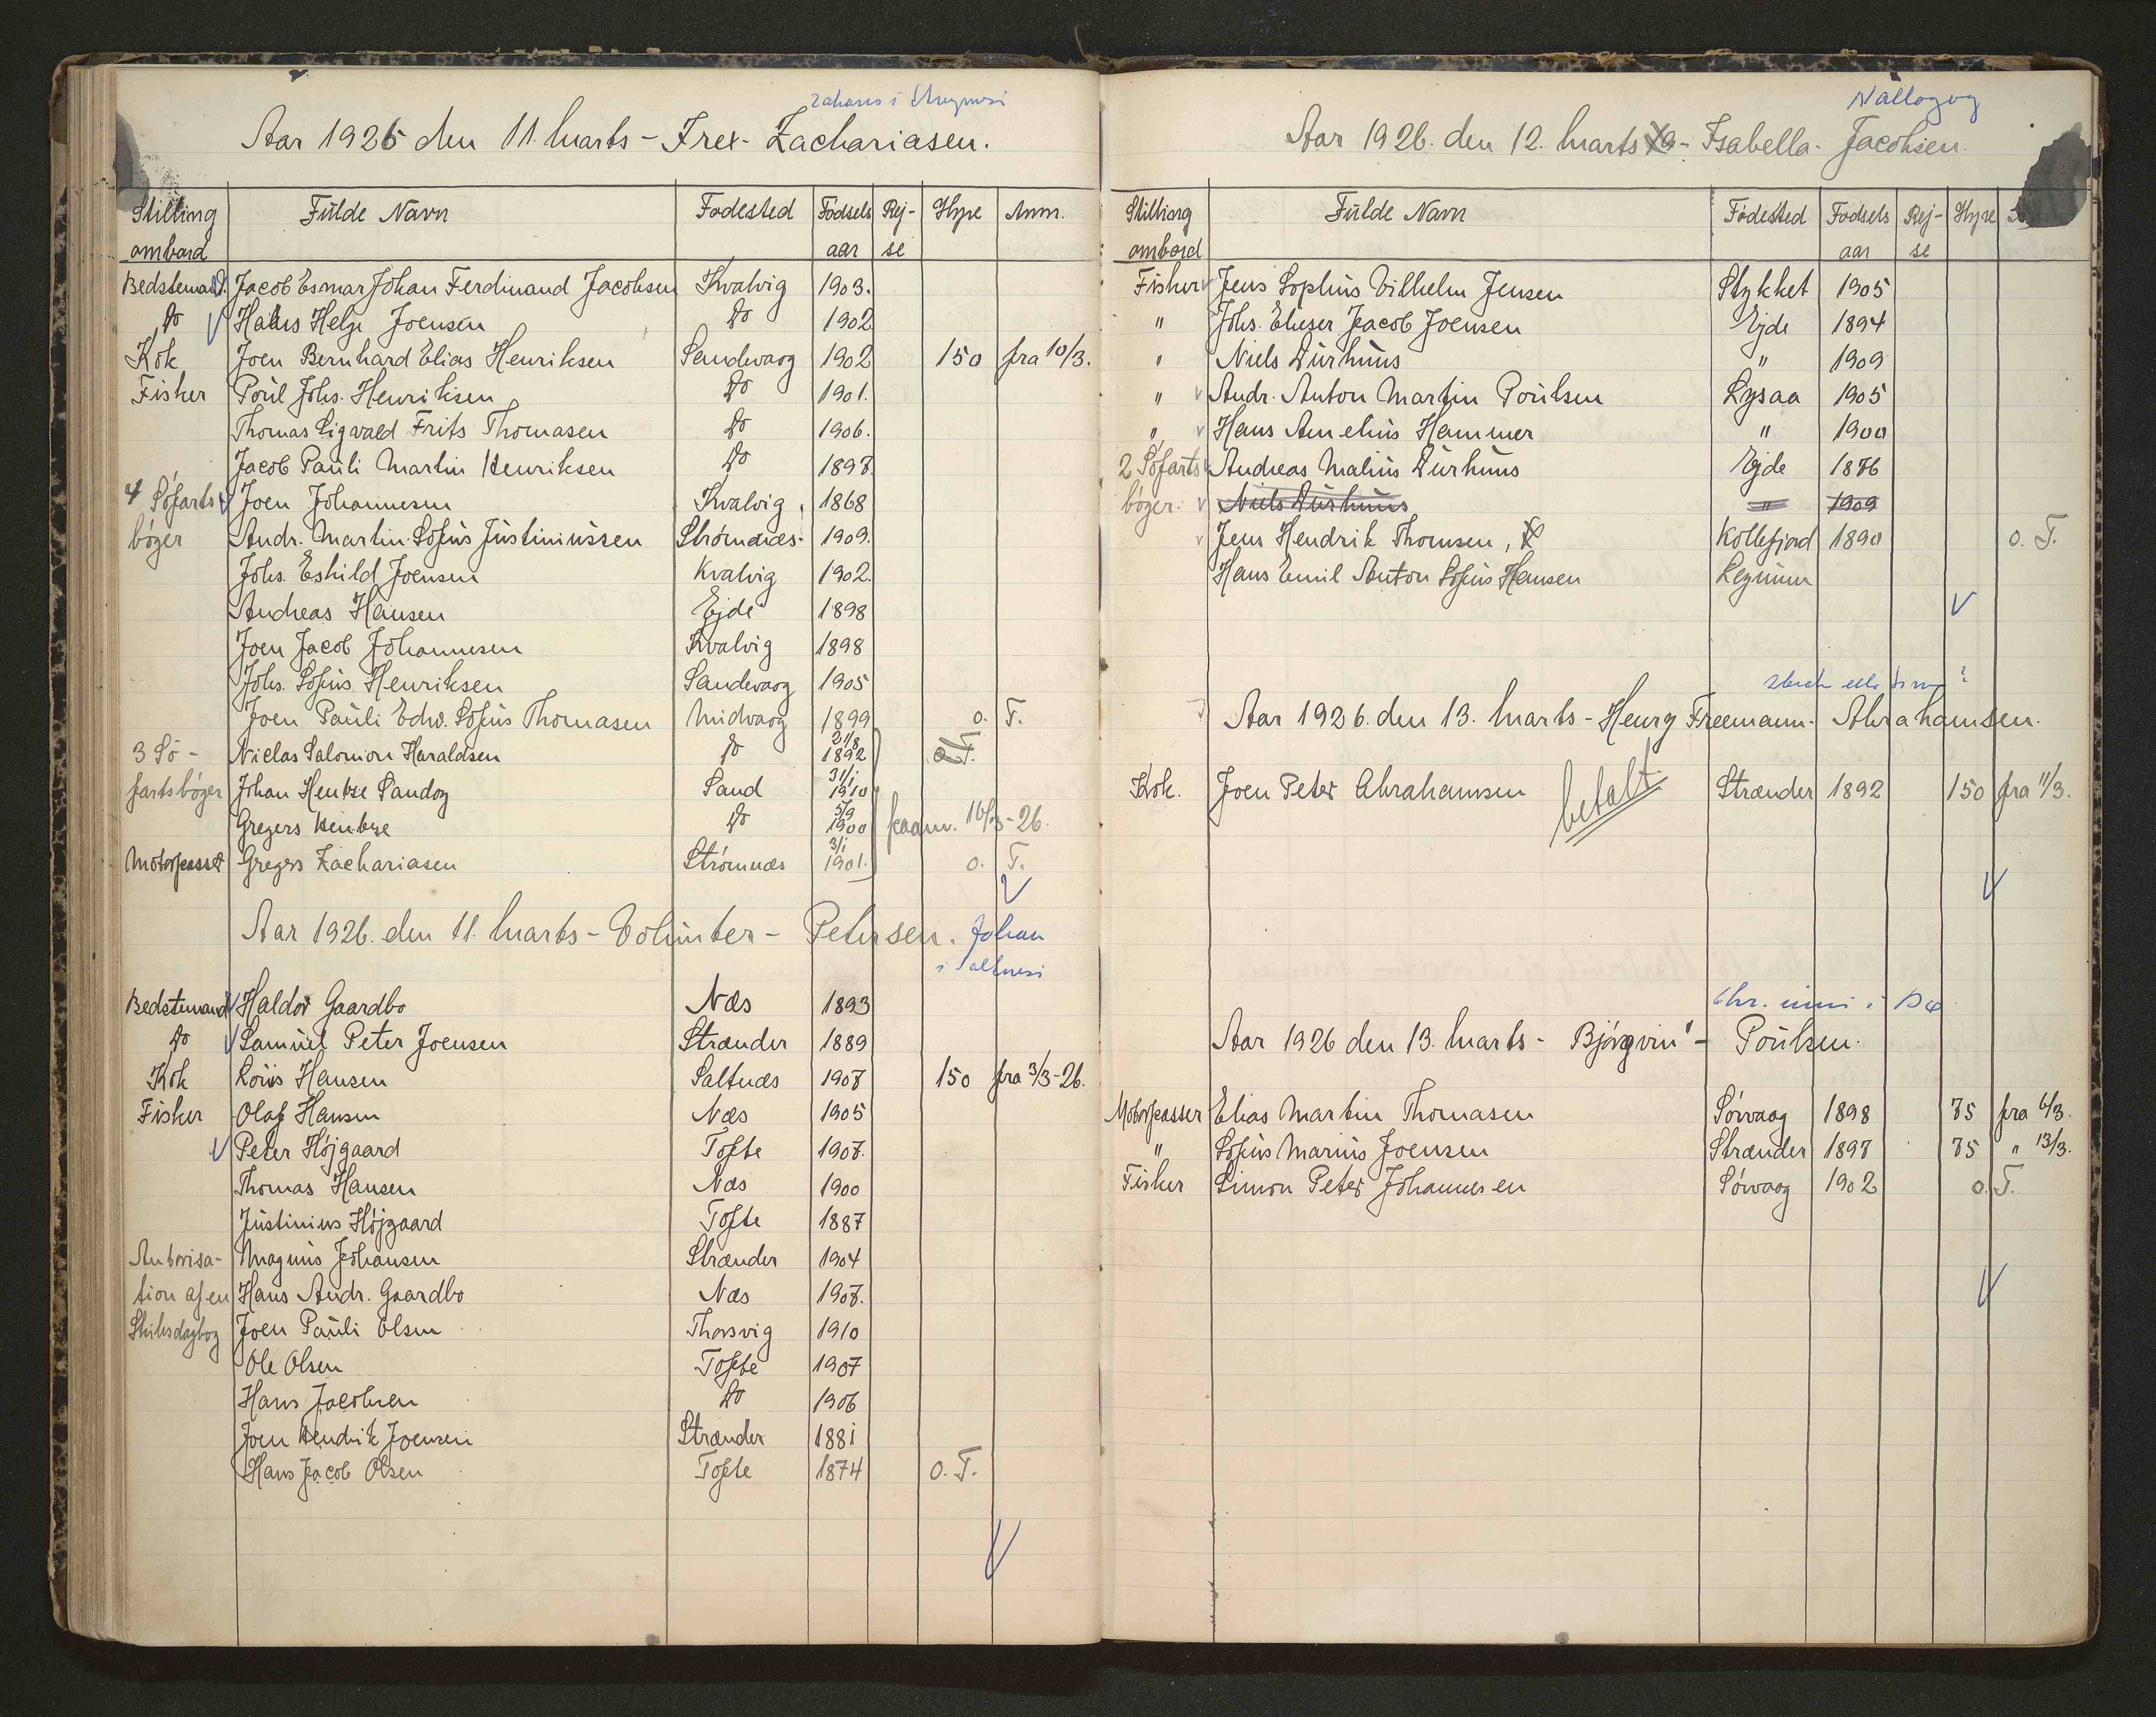 Aar 1926 den 11. Marts - Trex - Zachariasen.
Stilling ombord Fulde Navn Fødested Fødsels aar Rej-se Hyre Anm.
Bedstemand Jacob Esmar Johan Ferdinand Jacobsen Kvalvig 1903.
Do Hans Helge Joensen Do 1902
Kok Joen Bernhard Elias Henriksen Sandevaag 1902 150 fra 10/3.
Fisher Poul Johs. Henriksen Do 1901.
Thomas Sigvald Frits Thomasen Do 1906.
Jacob Pauli Martin Henriksen Do 1897.
4 Søfarts Joen Johannesen Kvalvig 1868
bøger Andr. Martin Sofus Justiniussen Strømnæs 1909.
Johs. Eskild Joensen Kvalvig 1902.
Andreas Hansen Ejde 1898
Joen Jacob Johannesen Kvalvig 1898
Johs. Sofus Henriksen Sandevaag 1905
Joen Pauli Edw. Sofus Thomasen Midvaag 1899 o. T.
3 Sø- Niclas Salomon Haraldsen Do 21/8 1892
fartsbøger Johan Hentze Sandoy Sand 31/1 1910
Gregers Hentze Do 5/9 1900 paam. 16/3-26.
Motorpasser Gregers Zachariasen Strømnæs 3/1 1901. o. T.
Aar 1926. den 11. Marts - Volunter - Petersen. Johan
i Saltnesi
Bedstemand Haldor Gaardbo Næs 1893
Do Samuel Peter Joensen Strænder 1889
Kok Louis Hansen Saltnæs 1907 150 fra 3/3-26.
Fisher Olaf Hansen Næs 1905
Peter Højgaard Tofte 1907.
Thomas Hansen Næs 1900
Justinius Højgaard Tofte 1887
Autorisa- Magnus Johansen Strænder 1904
tion af en Hans Andr. Gaardbo Næs 1907.
Skibsdagbog Joen Pauli Olsen Thorsvig 1910
Ole Olsen Tofte 1907
Hans Jacobsen Do 1906
Joen Hendrik Joensen Strænder 1881
Hans Jacob Olsen Tofte 1874 O. T.
Aar 1926. den 12. Marts - Isabella - Jacobsen.
Stilling ombord Fulde Navn Fødested Fødsels aar Rej-se Hyre
Fisher Jens Sophus Vilhelm Jensen Stykket 1905
" Johs. Elieser Jacob Joensen Ejde 1894
" Niels Durhuus " 1909
" Andr. Anton Martin Poulsen Kysaa 1905
" Hans Amelius Hammer " 1900
2 Søfarts Andreas Malius Durhuus Ejde 1876
bøger. Niels Durhuus " 1909
Jens Hendrik Thomsen, Kollefjord 1890 o. T.
Hans Emil Anton Sofus Hansen Legninum
Aar 1926. den 13. Marts - Henry Freemann - Abrahamsen.
Kok. Joen Peter Abrahamsen betalt Strænder 1892 150 fra 11/3.
Aar 1926 den 13. Marts - Bjørgvin" - Poulsen.
Motorpasser Elias Martin Thomasen Sørvaag 1898 75 fra 6/3.
" Sofus Marius Joensen Strænder 1897 75 " 13/3.
Fisher Simon Peter Johannesen Sørvaag 1902 o. T.